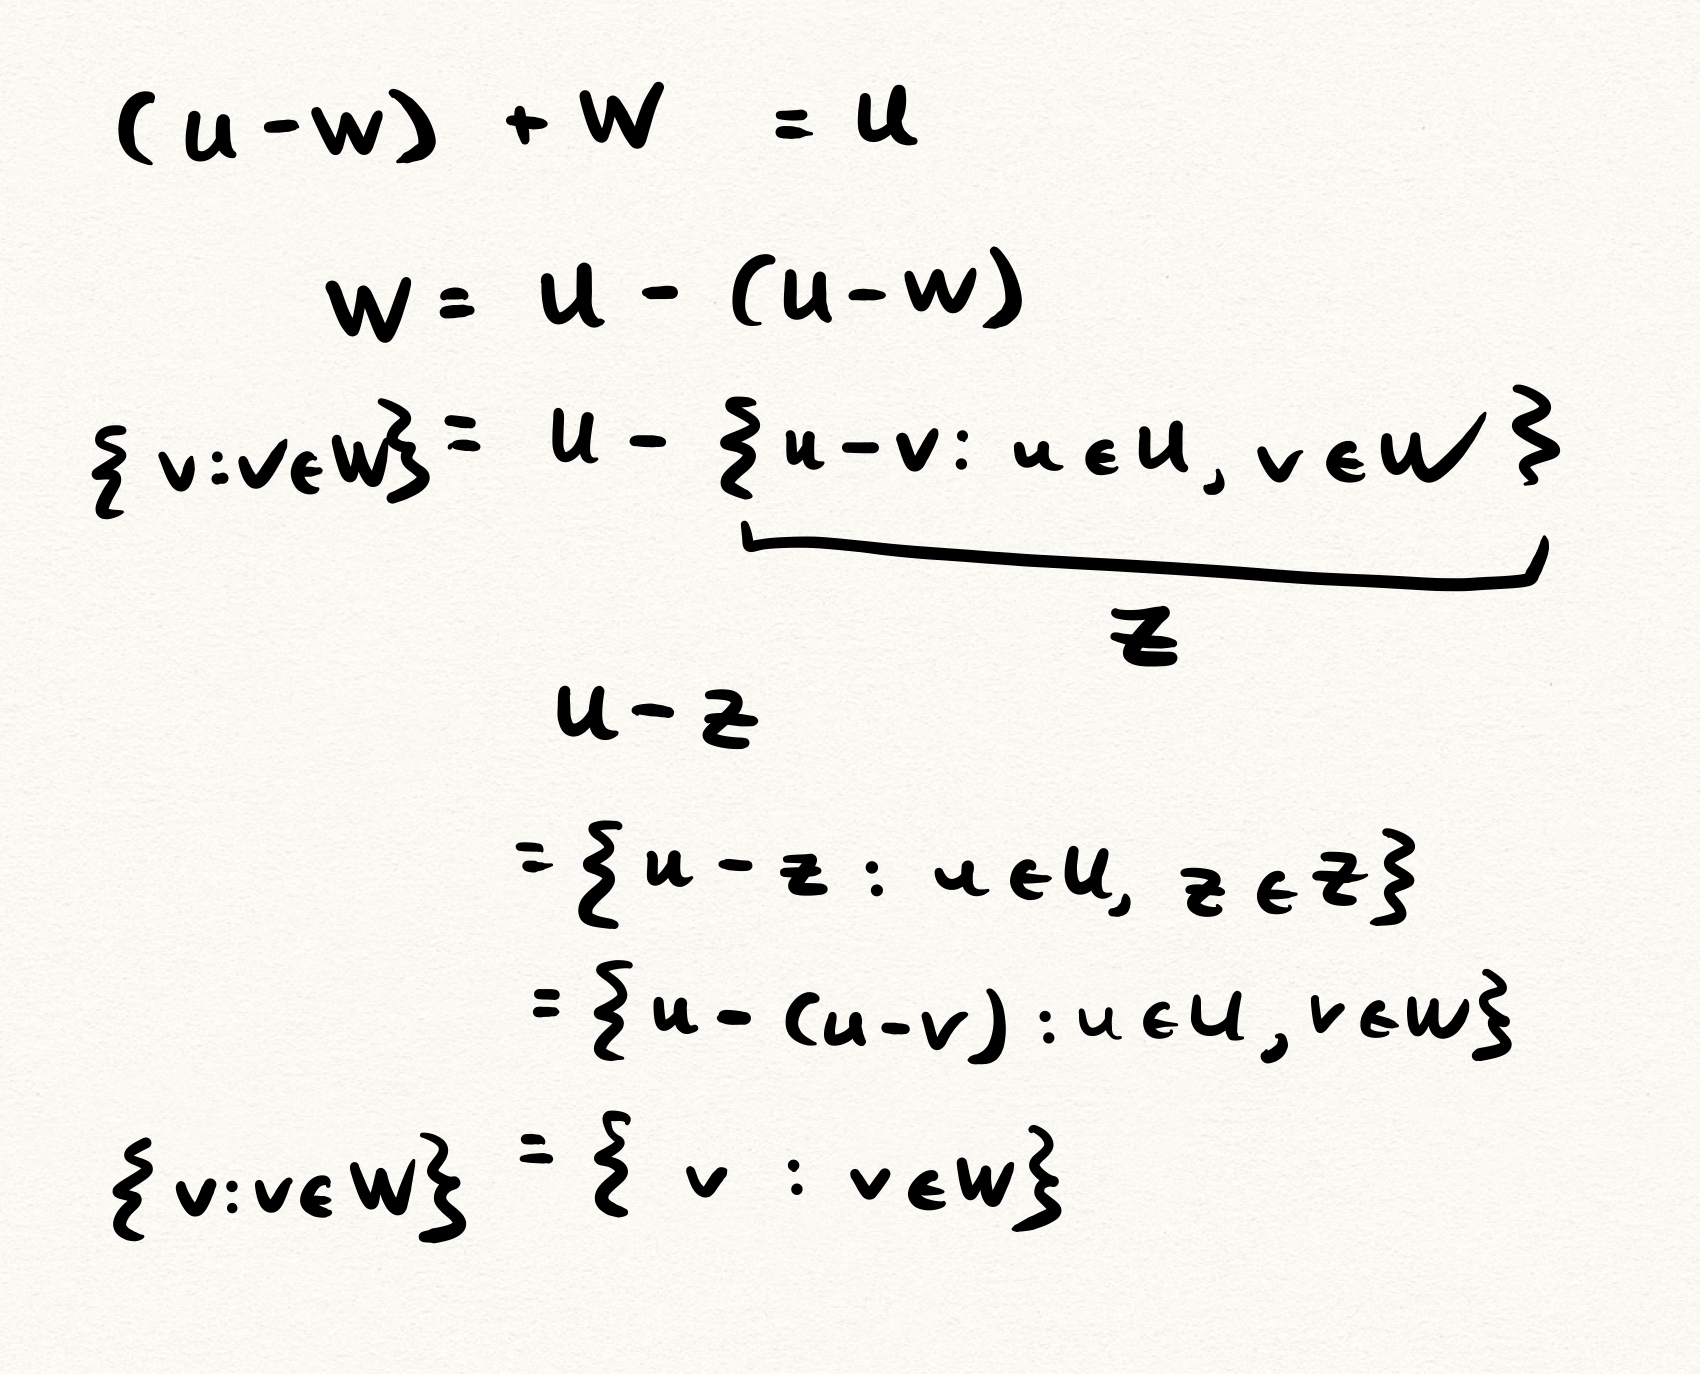 (U - W) + W = U
W = U - (U - W)
{ v : v ∈ W } = U - { u - v : u ∈ U, v ∈ W }
Z
U - Z
= { u - z : u ∈ U, z ∈ Z }
= { u - (u - v) : u ∈ U, v ∈ W }
{ v : v ∈ W } = { v : v ∈ W }